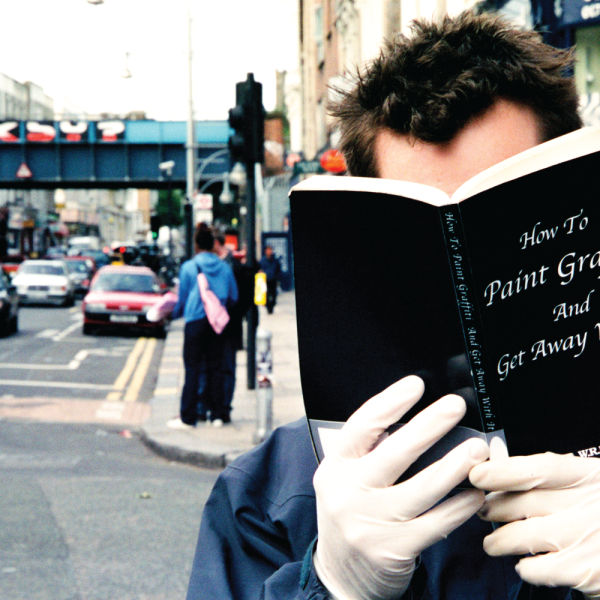 How To
Paint Gra
And
Get Away W
How To Paint Graffiti And Get Away With It